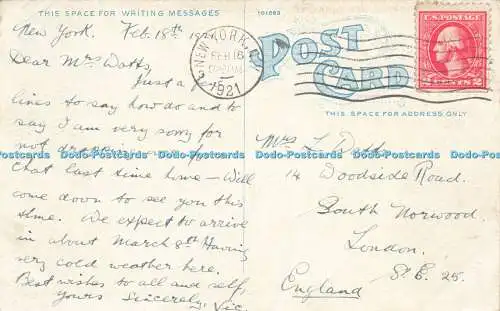 THIS SPACE FOR WRITING MESSAGES
101883
POST CARD
THIS SPACE FOR ADDRESS ONLY
NEW YORK, N.Y.
FEB 18
1921
U.S. POSTAGE
2 CENTS 2
New York. Feb. 18th 1921
Dear Mrs Watts,
Just a few
lines to say how do and to
say I am very sorry for
not dropping
that last time home - Will
come down to see you this
time. We expect to arrive
in about March 8th Having
very cold weather here.
Best wishes to all and self,
Yours Sincerely, Vic.
Mrs L Watts
14 Woodside Road.
South Norwood.
London.
S.E. 25.
England
Docs-Postcards Docs-Postcards Docs-Postcards Docs-Postcards Docs-Postcards